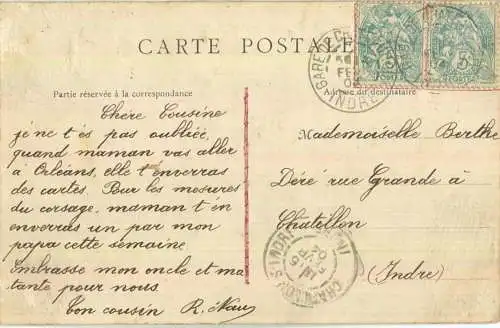 CARTE POSTALE
Partie réservée à la correspondance
Adresse du destinataire
Chère Cousine
je ne t'és pas oubliée,
quand maman vas aller
à Orléans, elle t'enverras
des cartes. Pour les mesures
du corsage, maman t'en
enverras un par mon
papa cette semaine.
Embrasse mon oncle et ma
tante pour nous.
Ton cousin R. Nau
Mademoiselle Berthe
Déré rue Grande à
Châtillon
(Indre)
GARE DE
FEV
INDRE
5
5
POSTES
INDRE